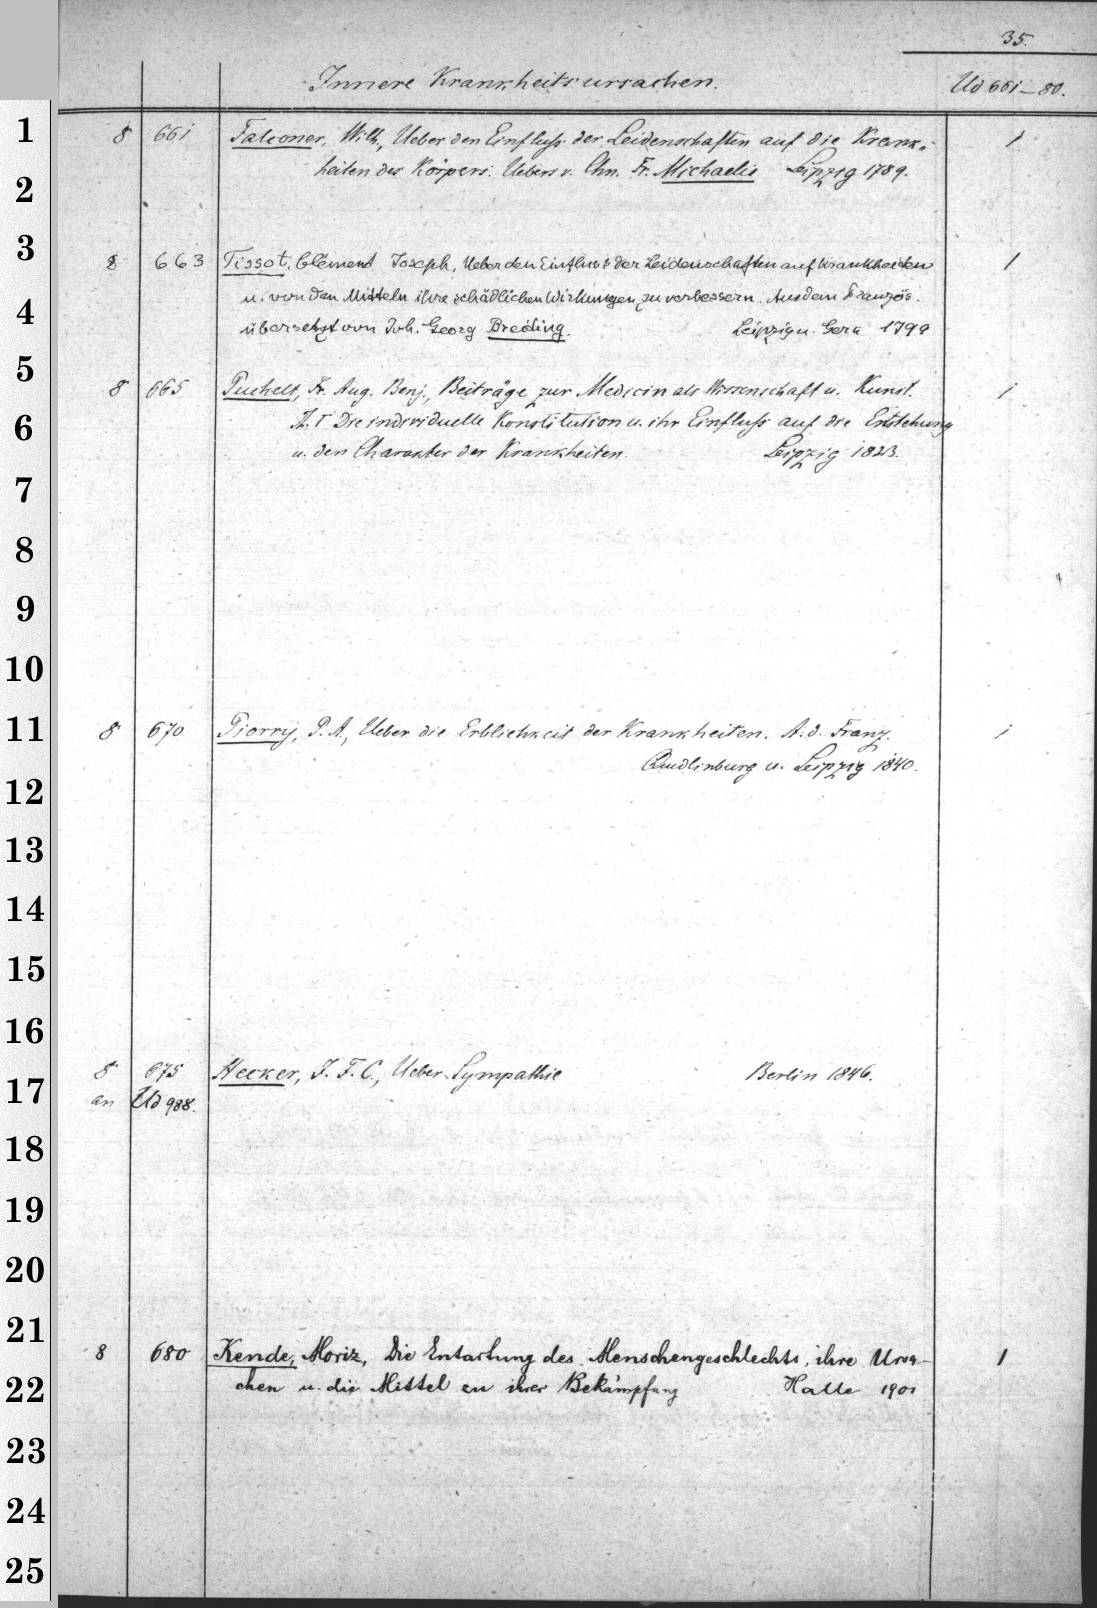 35.
Innere Krankheitsursachen.
Ud 661–80.
1
8 661 Falconer, Wilh., Ueber den Einfluss der Leidenschaften auf die Krank- 1
2
heiten des Körpers. Uebers. v. Chn. Fr. Michaelis Leipzig 1789.
3
8 663 Tissot, Clément Joseph, Ueber den Einfluss der Leidenschaften auf Krankheiten 1
4
u. von den Mitteln ihre schädlichen Wirkungen zu verbessern. Aus dem Französ.
übersetzt von Joh. Georg Breiting. Leipzig u. Gera 1799
5
8 665 Puchelt, Fr. Aug. Benj., Beiträge zur Medicin als Wissenschaft u. Kunst. 1
6
A.T. Die individuelle Konstitution u. ihr Einfluss auf die Entstehung
u. den Charakter der Krankheiten. Leipzig 1823.
7
8
9
10
11
8 670 Piorry, P. A., Ueber die Erblichkeit der Krankheiten. A. d. Franz. 1
12
Quedlinburg u. Leipzig 1840.
13
14
15
16
8 675 Hecker, J. F. C., Ueber Sympathie Berlin 1846.
17
an Ud 988.
18
19
20
21
8 680 Kende, Moriz, Die Entartung des Menschengeschlechts, ihre Ursa- 1
22
chen u. die Mittel zu ihrer Bekämpfung Halle 1901
23
24
25